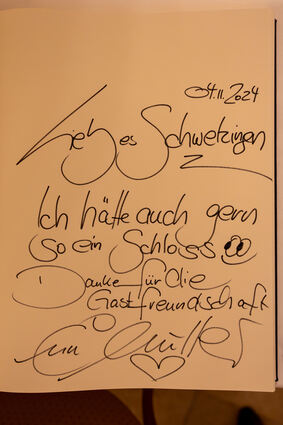 04.11.2024
Liebes Schwetzingen
Ich hätte auch gern
so ein Schloss
Danke für die
Gastfreundschaft